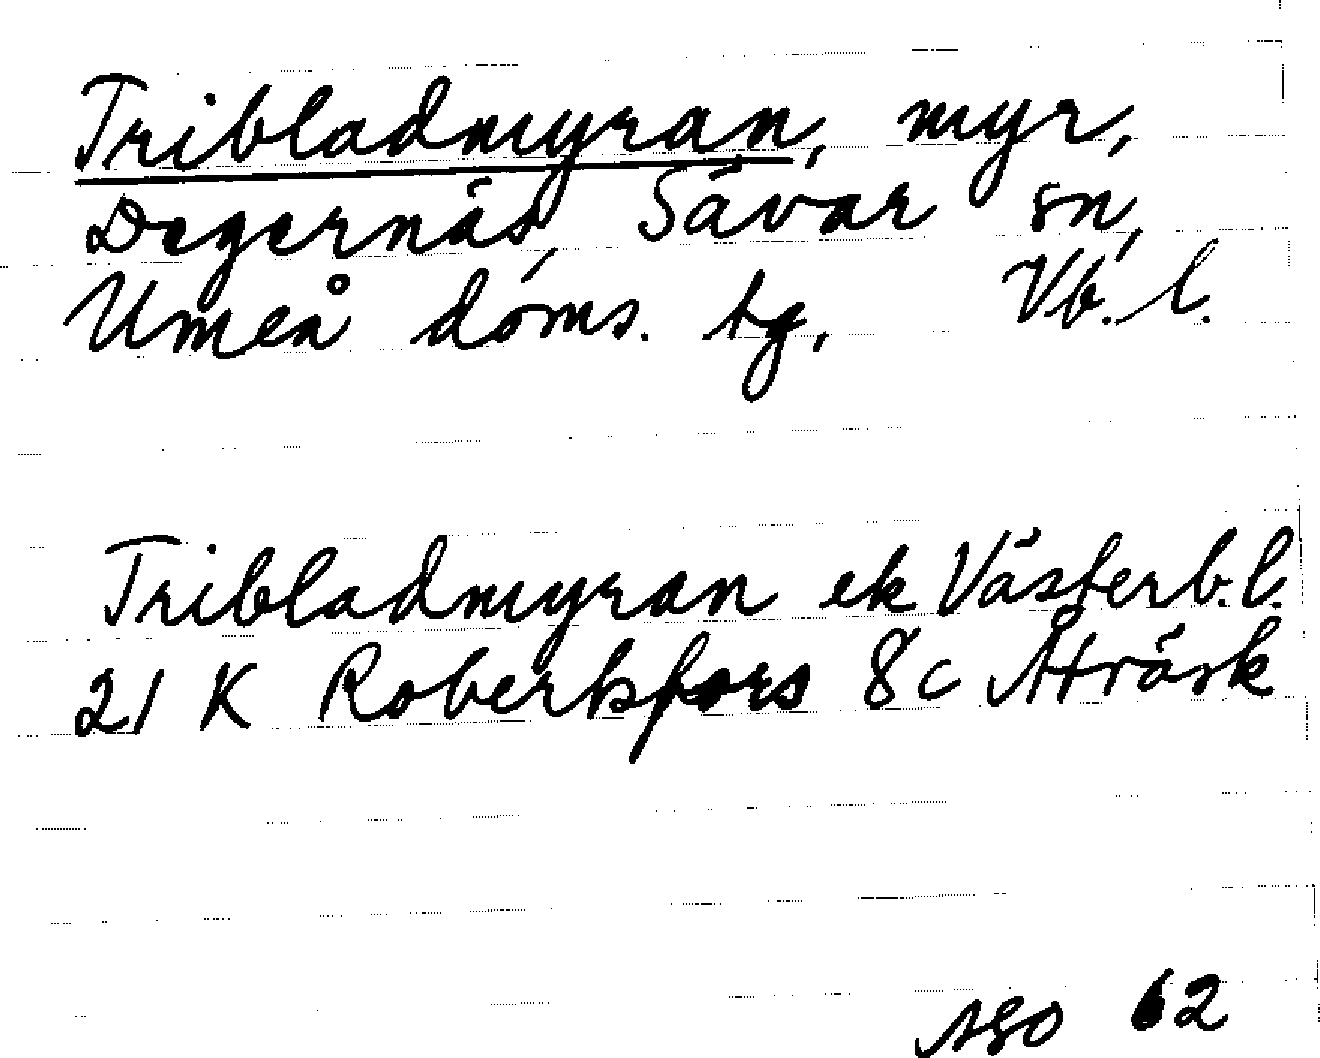 Tribladmyran, myr,
Degernäs, Sävar sn,
Umeå doms. tg, Vb. l.
Tribladmyran ek Västerb. l.
21 K Robertsfors 8c Åträsk
ASO 62